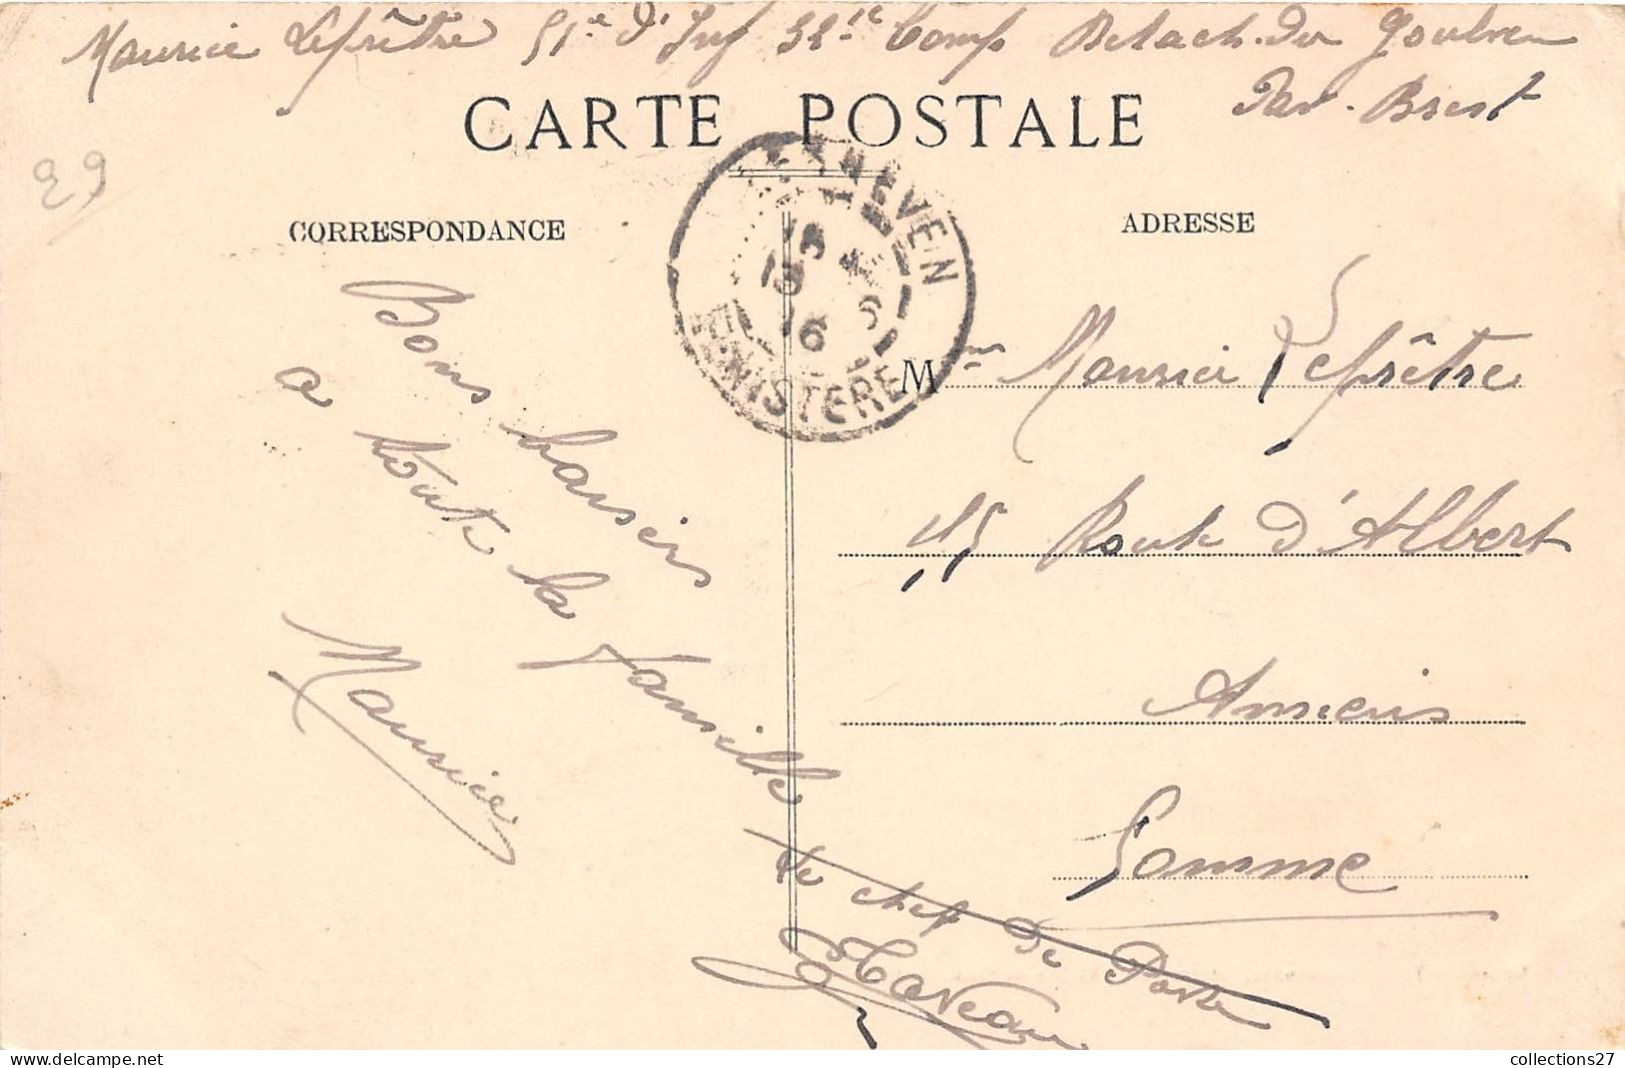 Maurice Leprêtre 51e d'Inf 32e Comp Détach. du Goulven
Par. Brest
CARTE POSTALE
29
CORRESPONDANCE
ADRESSE
LESNEVEN
18
13 6
16
FINISTERE
Bons baisers
a toute la famille
Maurice
Mme Maurice Leprêtre
45 Route d'Albert
Amiens
Somme
le chef de Poste
collections27